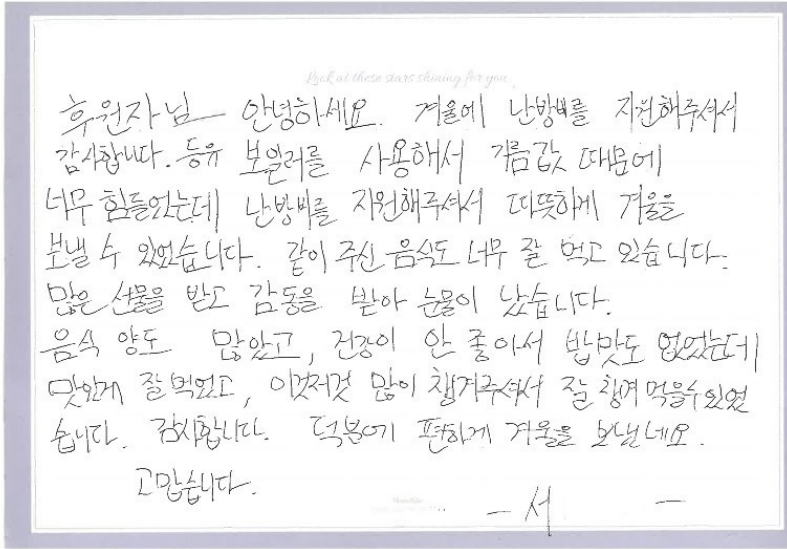 Look at these stars shining for you
후원자님 안녕하세요. 겨울에 난방비를 지원해주셔서
감사합니다. 등유 보일러를 사용해서 기름값 때문에
너무 힘들었는데 난방비를 지원해주셔서 따뜻하게 겨울을
보낼 수 있었습니다. 같이 주신 음식도 너무 잘 먹고 있습니다.
많은 선물을 받고 감동을 받아 눈물이 났습니다.
음식 양도 많았고, 건강이 안 좋아서 밥맛도 없었는데
맛있게 잘 먹었고, 이것저것 많이 챙겨주셔서 잘 챙겨 먹을수 있었
습니다. 감사합니다. 덕분에 편하게 겨울을 보낼네요.
고맙습니다.
- 서 -